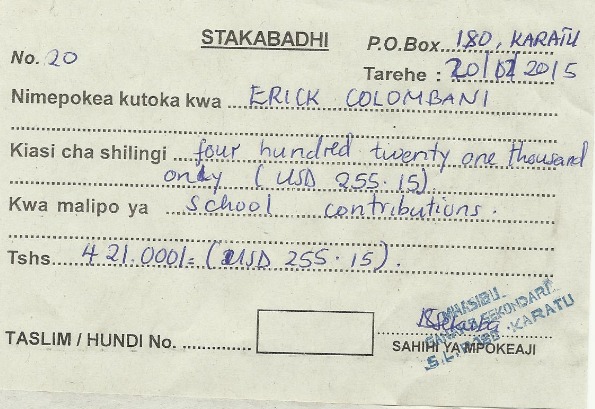 STAKABADHI
P.O.Box 180, KARATU
No. 20
Tarehe : 20/02/2015
Nimepokea kutoka kwa ERICK COLOMBANI
Kiasi cha shilingi four hundred twenty one thousand
only (USD 255.15)
Kwa malipo ya school contributions.
Tshs 421.000/= (USD 255.15).
MHASIBU
SEKONDARI
KARATU
TASLIM / HUNDI No.
SAHIHI YA MPOKEAJI